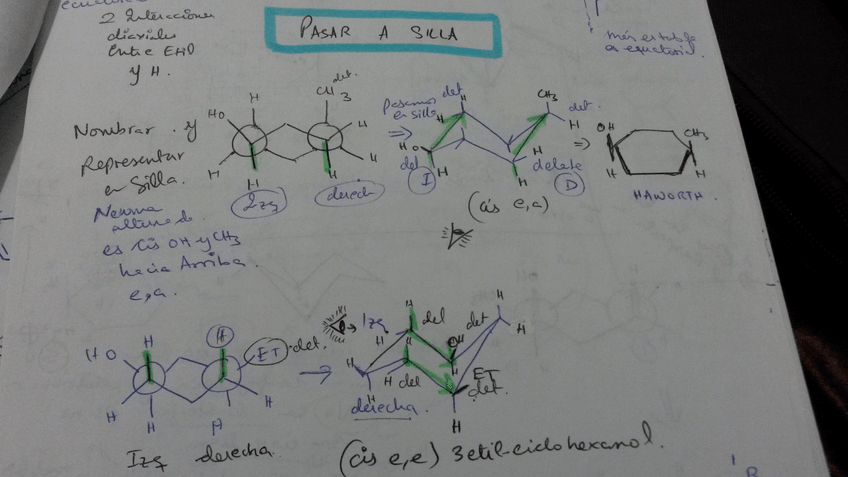 2 Interacciones
diaxiales
entre Etilo
y H.
PASAR A SILLA
más estable
a ecuatorial.
Nombrar y
Representar
en Silla.
Newman
alternado
es Cis OH y CH3
hacia Arriba.
e,a.
det.
CH3
H
HO
H
H
H
H
H
Izq
derech
Pasamos
en silla
⇒
det
H
H
HO
del
H
I
CH3
det.
H
H
delante
H
D
(cis e,a)
⇒
OH
CH3
H
H
HAWORTH.
H
H
HO
ET
det.
H
H
H
H
Izq derecha.
→
Izq
H
del
det
H
H
H
H
OH
H
H
H del
ET
det.
H
derecha.
(cis e,e) 3etil-ciclohexanol.